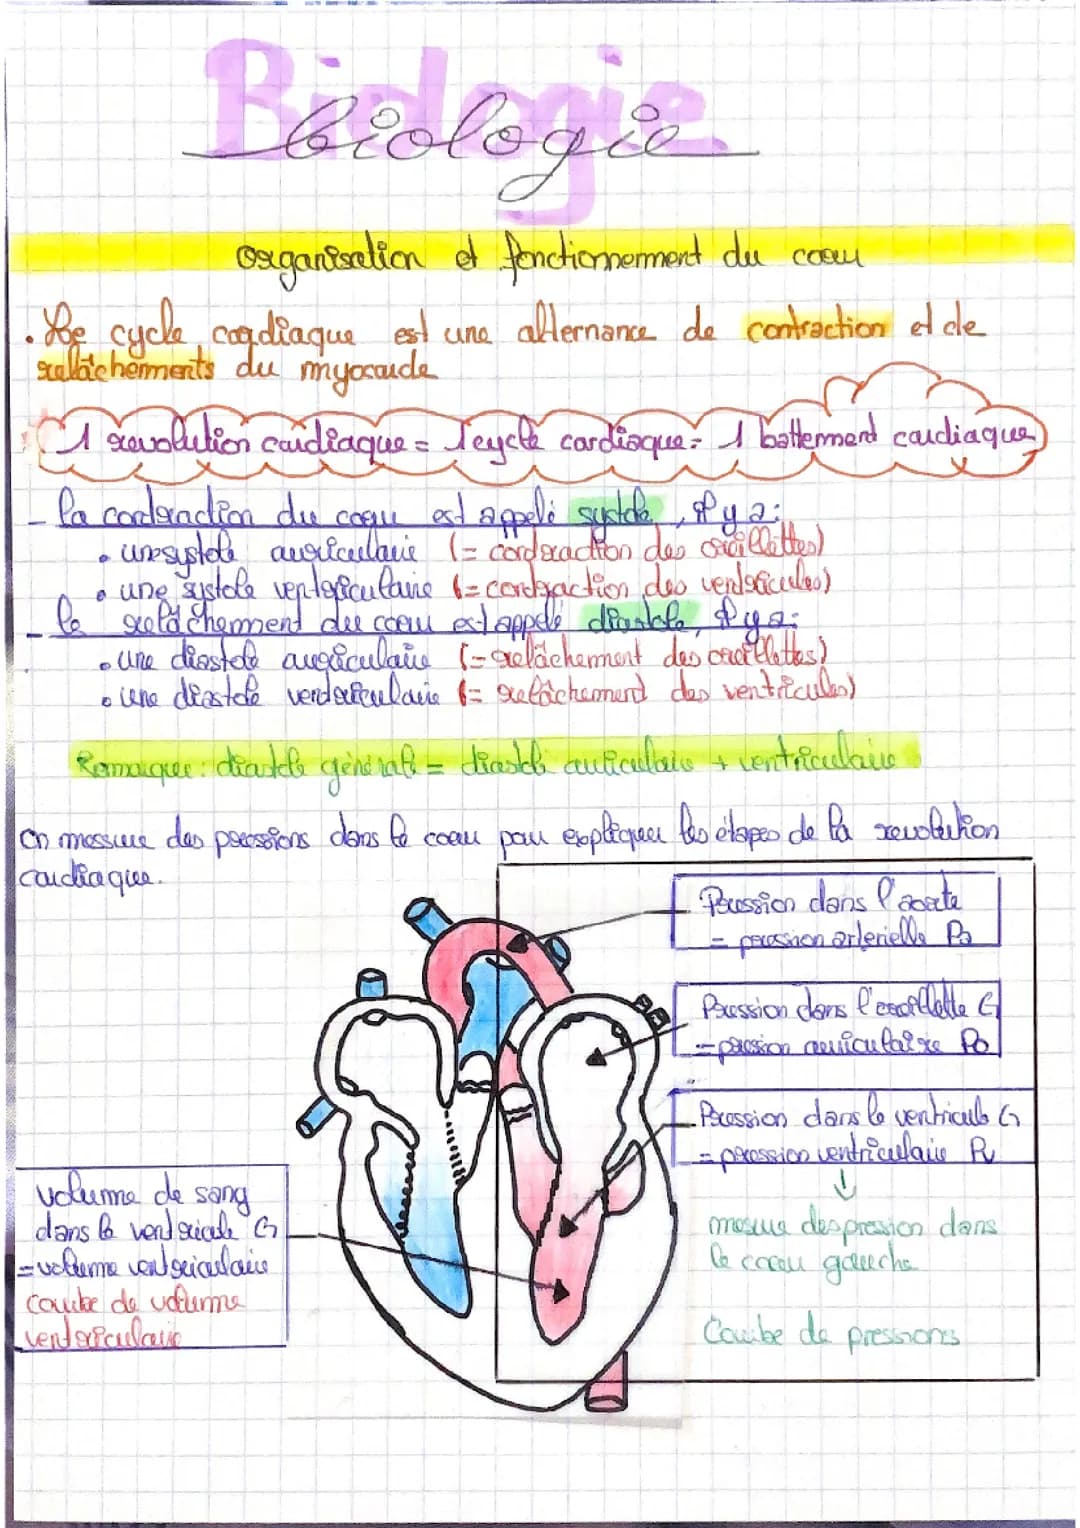 Biologie
biologie
organisation et fonctionnement du coeur
. Le cycle cardiaque est une alternance de contraction et de
relâchements du myocarde
1 revolution cardiaque = 1 cycle cardiaque = 1 battement cardiaque
- la contraction du coeur est appelé systole, il y a :
• une systole auriculaire (= contraction des oreillettes)
• une systole ventriculaire (= contraction des ventricules)
- le relâchement du coeur est appelé diastole, il y a :
• une diastole auriculaire (= relâchement des oreillettes)
• une diastole ventriculaire (= relâchement des ventricules)
Remarque : diastole générale = diastole auriculaire + ventriculaire
On messure des pressions dans le coeur pour expliquer les étapes de la revolution
cardiaque.
Pression dans l'aorte
= pression arterielle Pa
Pression dans l'oreillette G
= pression auriculaire Po
Pression dans le ventricule G
= pression ventriculaire Pv
↓
mesure des pression dans
le coeur gauche
Courbe de pressions
volume de sang
dans le ventricule G
= volume ventriculaire
Courbe de volume
ventriculaire